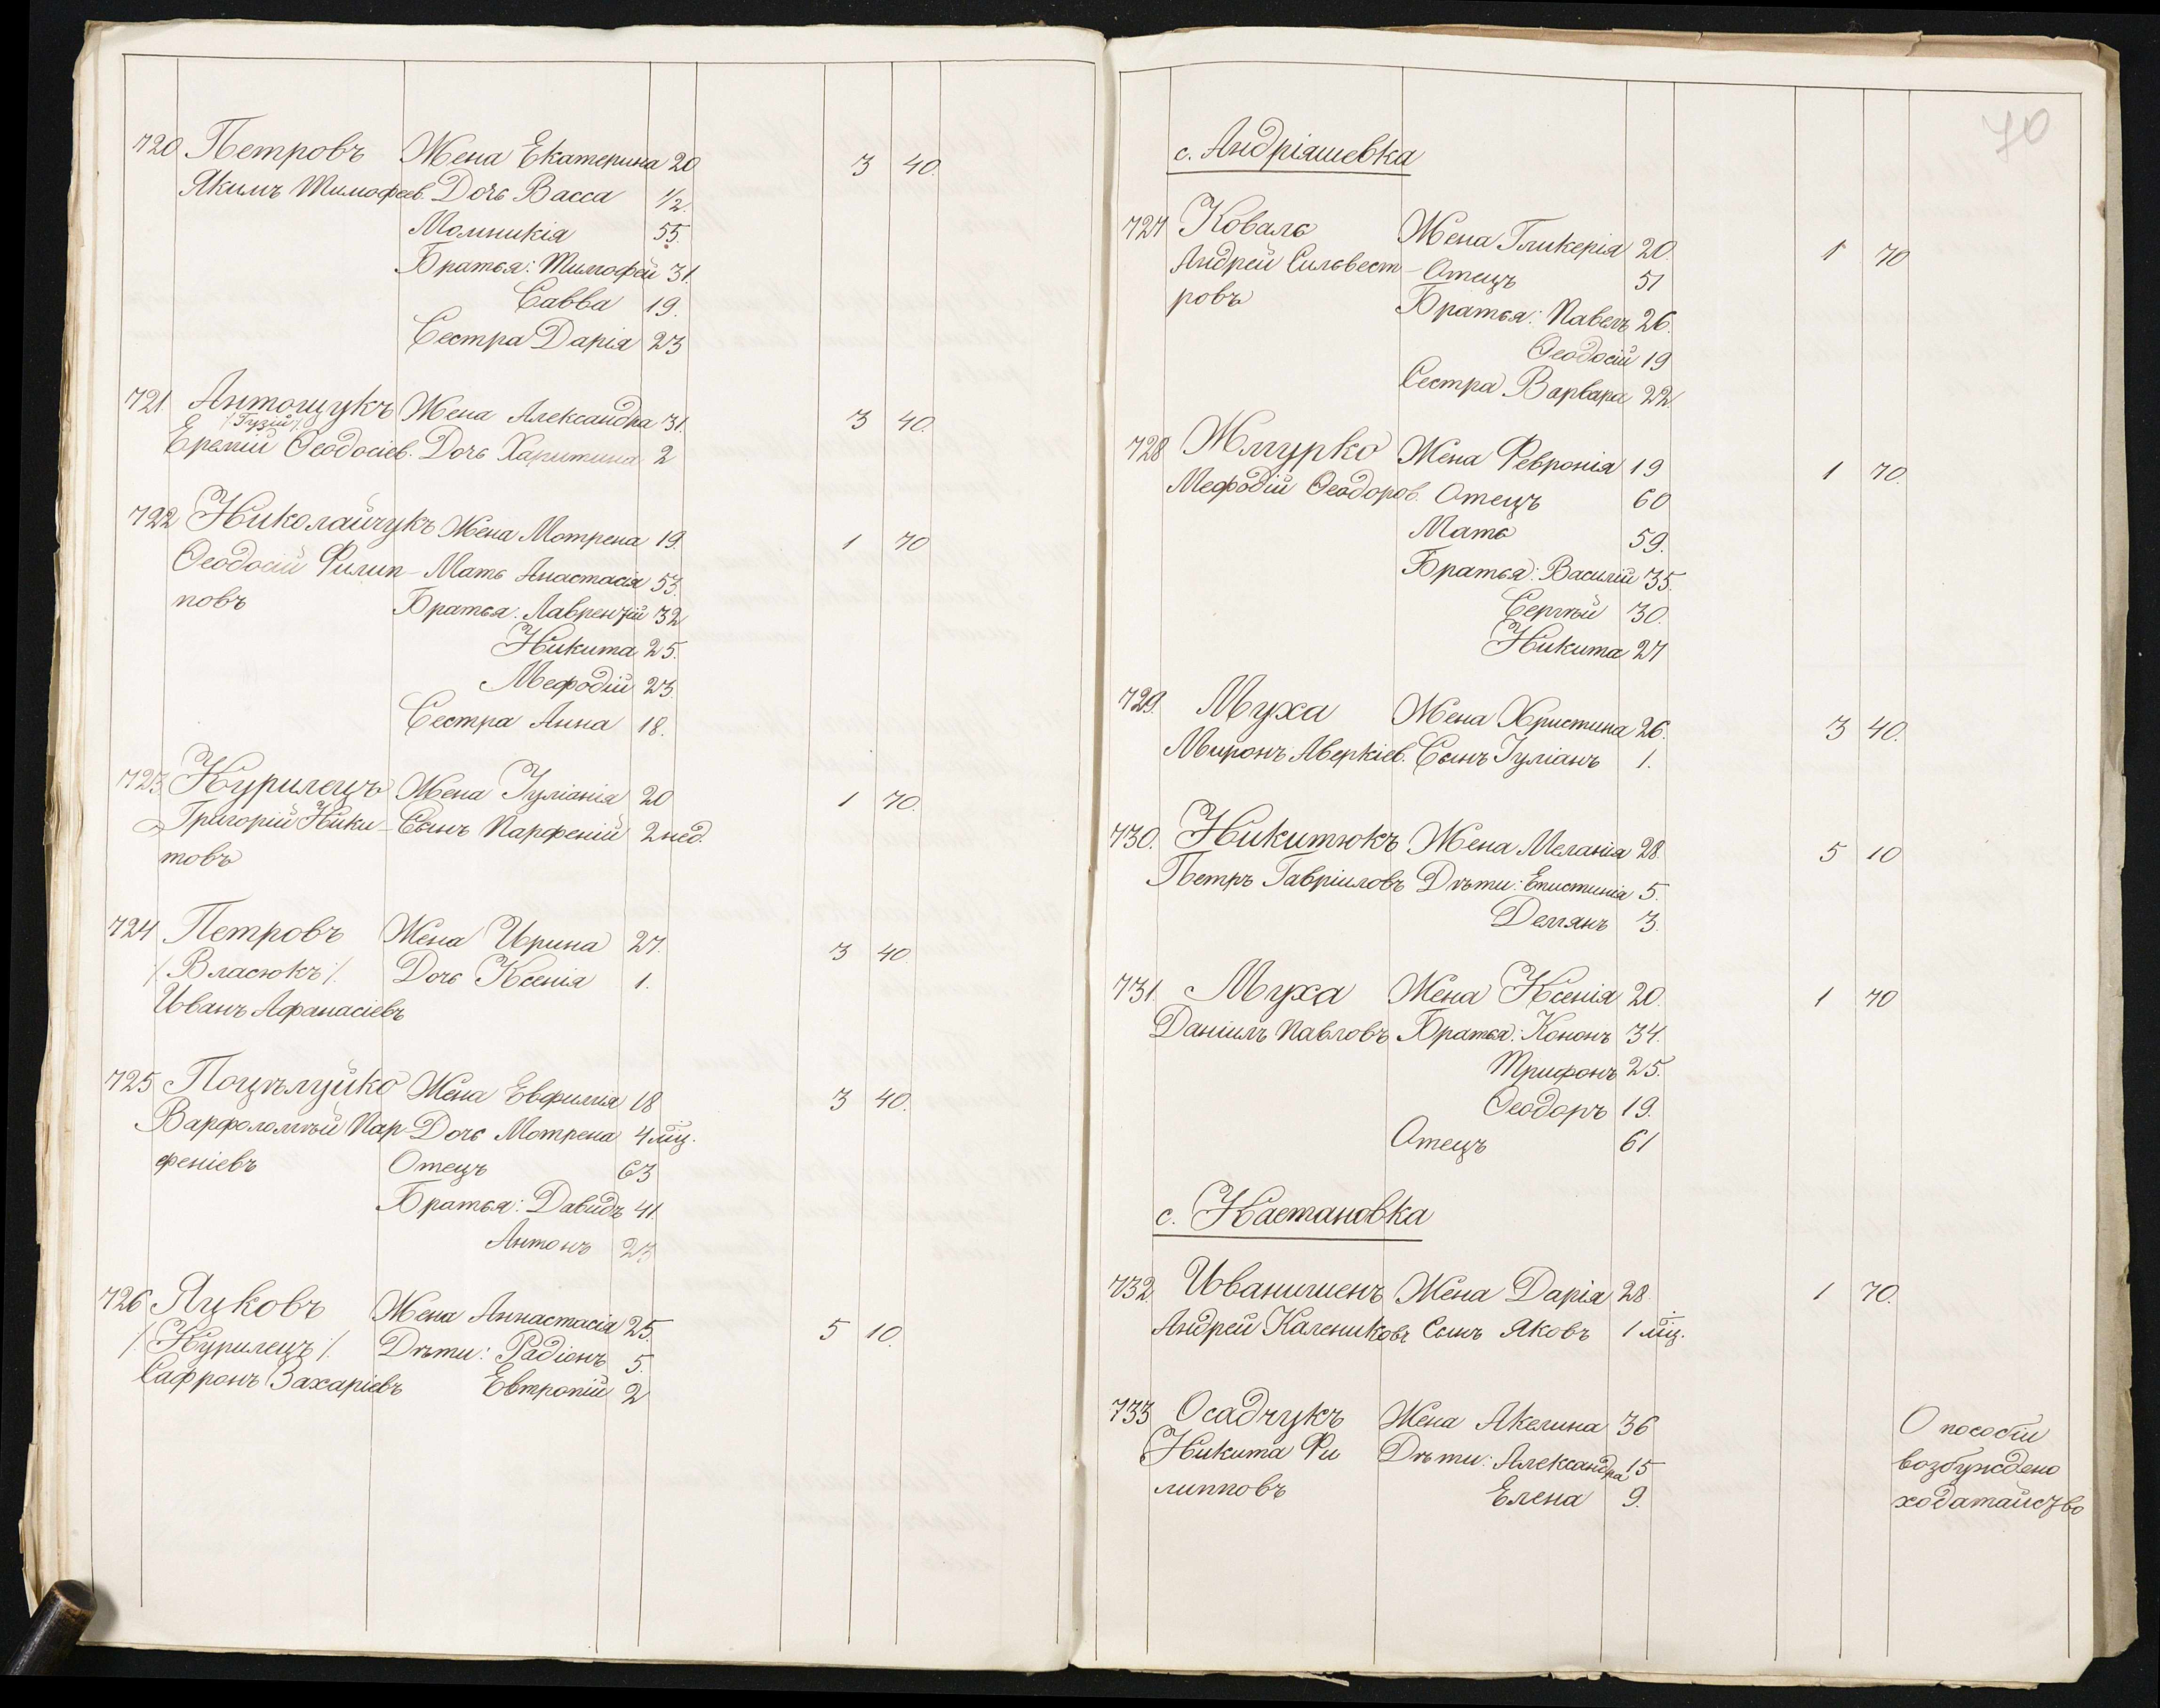 720 Петровъ Жена Екатерина 20 3 40.
Якимъ Тимофеев. Дочь Васса 1/2.
55.
Братья: Тимофей 31.
Савва 19.
Сестра Дарія 23
721 Антощукъ Жена Александра 31. 3 40.
/Гузій/
Еремій Ѳеодосіев. Дочь Харитина 2
722 Николайчукъ Жена Мотрена 19. 1 70
Ѳеодосій Филип- Мать Анастасія 53.
повъ Братья: Лаврентій 32
Никита 25.
Мефодій 23.
Сестра Анна 18.
723. Курилецъ Жена Іуліанія 20 1 70.
Григорій Ники- Сынъ Парфеній 2 нед.
товъ
724 Петровъ Жена Ирина 27. 3 40
/Власюкъ/. Дочь Ксенія 1.
Иванъ Афанасіевъ
725 Поцѣлуйко Жена Евфимія 18 3 40.
Варфоломѣй Пар- Дочь Мотрена 4 мц.
феніевъ Отецъ 63
Братья: Давидъ 41.
Антонъ 23
726 Яцковъ Жена Аннастасія 25. 5 10.
/Курилецъ/. Дѣти: Радіонъ 5.
Сафронъ Захаріевъ Евтропій 2
70
с. Андріяшевка
727 Коваль Жена Гликерія 20. 1 70
Андрей Сильвест- Отецъ 51
ровъ Братья: Павелъ 26.
Ѳеодосій 19
Сестра Варвара 22.
728 Жмурко Жена Февронія 19 1 70.
Мефодій Ѳеодоров. Отецъ 60
Мать 59.
Братья: Василій 35.
Сергѣй 30.
Никита 27
729. Муха Жена Христина 26. 3 40.
Миронъ Аверкіев. Сынъ Іуліанъ 1.
730. Никитюкъ Жена Меланія 28. 5 10
Петръ Гавріиловъ Дѣти: Епистинія 5.
Демянъ 3.
731. Муха Жена Ксенія 20. 1 70
Даніилъ Павловъ Братья: Кононъ 34.
Трифонъ 25.
Ѳеодоръ 19.
Отецъ 61
с. Настановка
732. Иванишенъ Жена Дарія 28. 1 70.
Андрей Калениковъ Сынъ Яковъ 1 мц.
733 Осадчукъ Жена Акелина 36 О пособіи
Никита Фи Дѣти: Александра 15 возбуждено
липповъ Елена 9. ходатайство